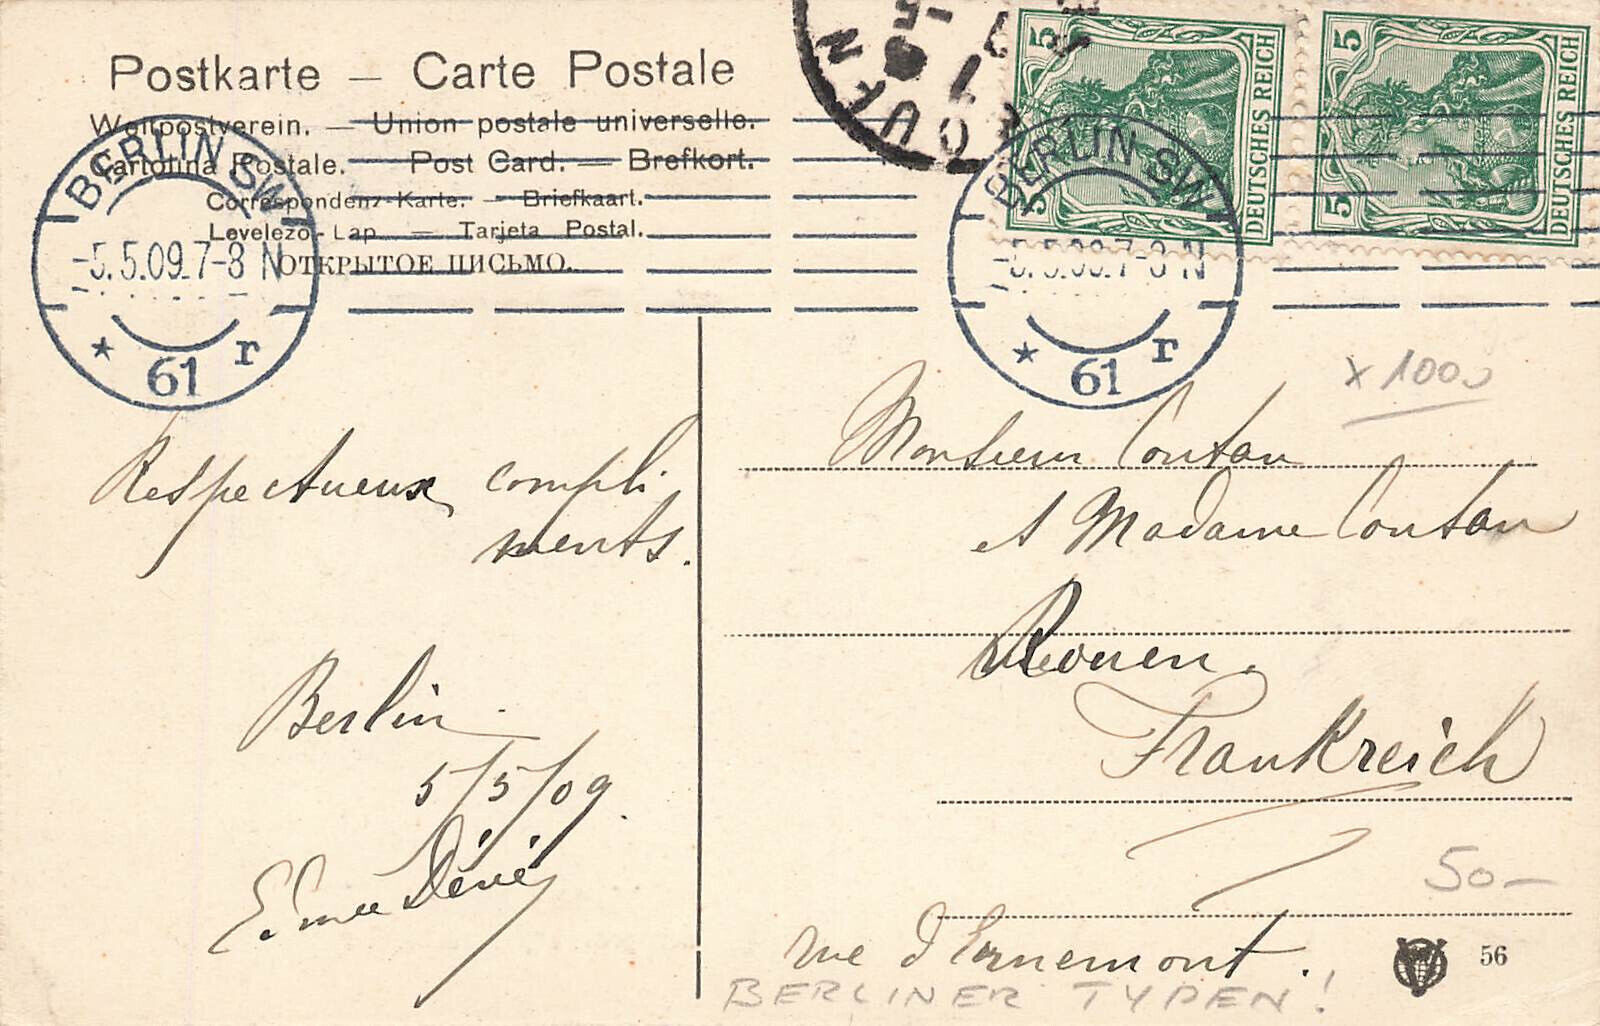 Postkarte — Carte Postale
Weltpostverein. — Union postale universelle.
Cartolina Postale. — Post Card. — Brefkort.
Correspondenz-Karte. — Briefkaart.
Levelező-Lap. — Tarjeta Postal.
ОТКРЫТОЕ ПИСЬМО.
BERLIN SW
-5.5.09.7-8 N
* 61 r
BERLIN SW
-5.5.09.7-8 N
* 61 r
5
5
DEUTSCHES REICH
5
5
DEUTSCHES REICH
x 1000
Respectueux compli
ments.
Berlin
5/5/09.
Monsieur Coutan
et Madame Coutan
Rouen.
Frankreich
50—
rue d'Ernemont.
56
BERLINER TYPEN!